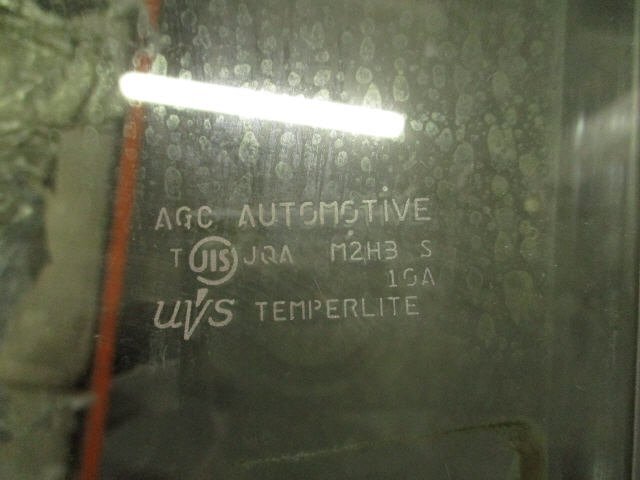 AGC AUTOMOTIVE
T JIS JQA M2H3 S
16A
UVS TEMPERLITE